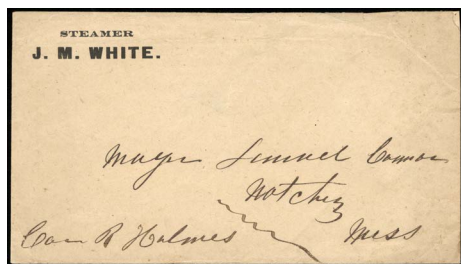 STEAMER
J. M. WHITE.
Major Lemuel Connor
Natchez
Care R Holmes Miss